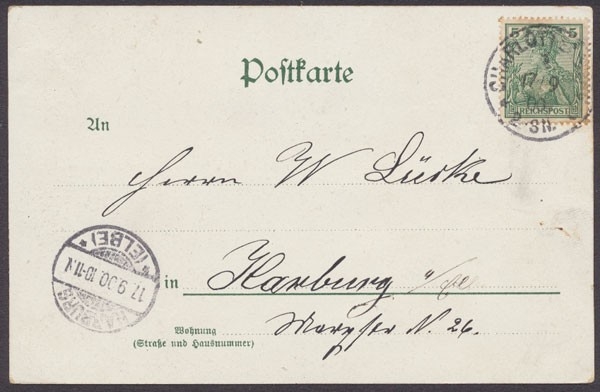 5 5
REICHSPOST
CHARLOTTEN
17 9
2 SN.
Postkarte
An
Herrn W Lücke
HARBURG
* (ELBE) *
17.9.00.10-11.N.
in Harburg a/Elbe
Wohnung
(Straße und Hausnummer)
N. 26.